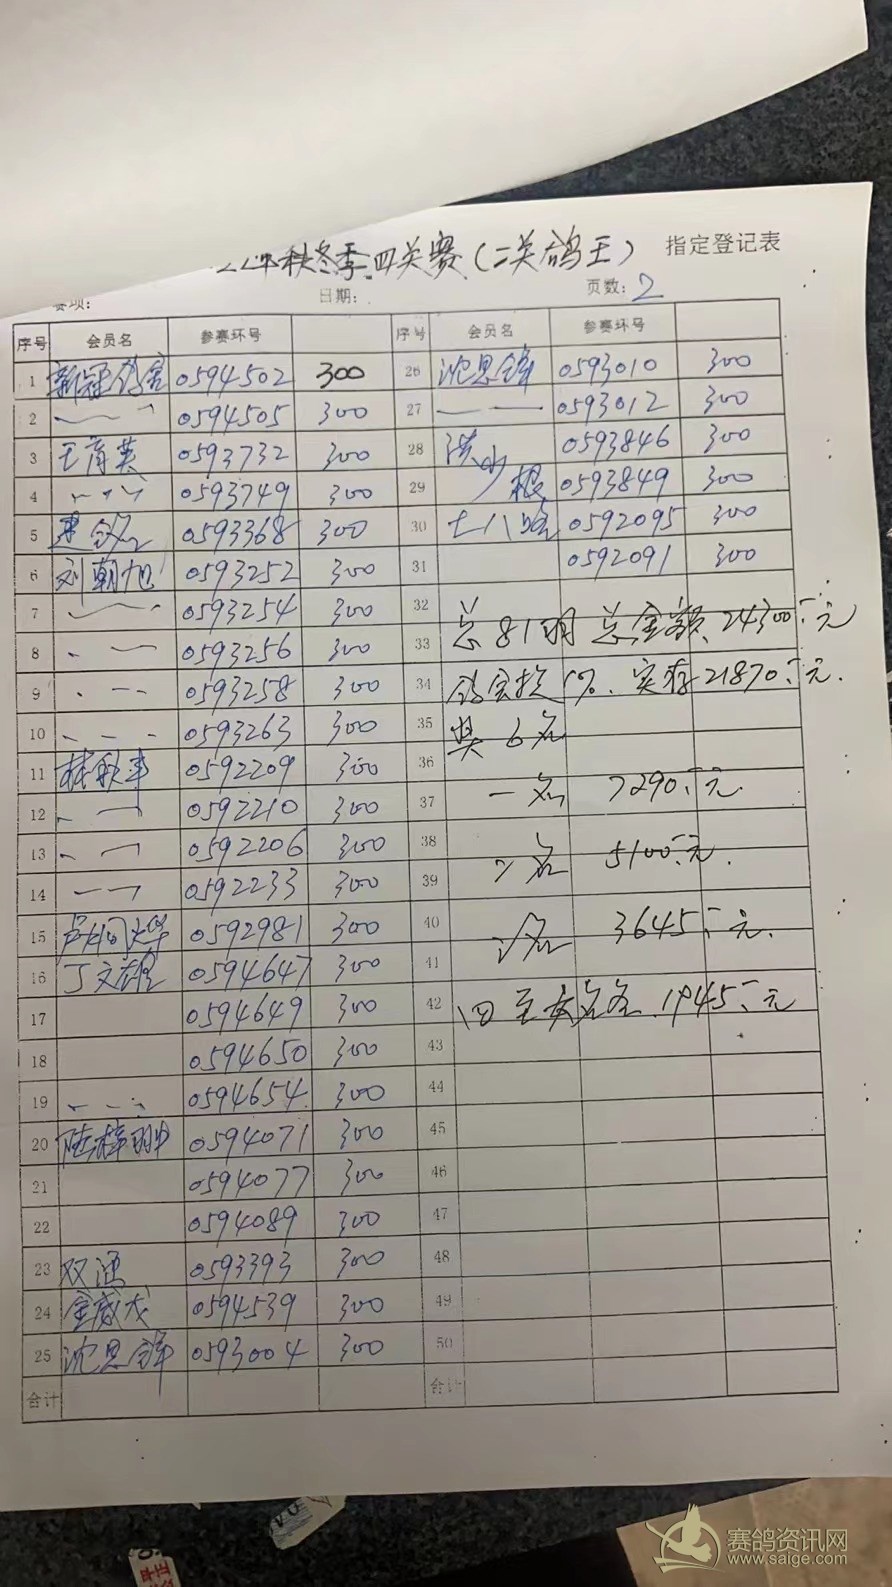 22年秋冬季四关赛（二关鸽王） 指定登记表
赛项： 日期： 页数：2
序号 会员名 参赛环号 序号 会员名 参赛环号
1 新冠鸽舍 0594502 300 26 沈思锋 0593010 300
2 0594505 300 27 0593012 300
3 王育英 0593732 300 28 洪 0593846 300
4 0593749 300 29 少根 0593849 300
5 建 0593368 300 30 七八 0592095 300
6 刘朝旭 0593252 300 31 0592091 300
7 0593254 300 32 总81羽 总金额 24300元
8 0593256 300 33
9 0593258 300 34 实存21870元.
10 0593263 300 35 奖6名
11 林秋 0592209 300 36
12 0592210 300 37 一名 7290元.
13 0592206 300 38
14 0592233 300 39 二名 5100元.
15 0592981 300 40 3645元.
16 丁文雄 0594647 300 41
17 0594649 300 42 四至六名各 1945元
18 0594650 300 43
19 0594654 300 44
20 陆梓翀 0594071 300 45
21 0594077 300 46
22 0594089 300 47
23 双 0593393 300 48
24 金成 0594539 300 49
25 沈思锋 0593004 300 50
合计 合计
赛鸽资讯网
www.saige.com